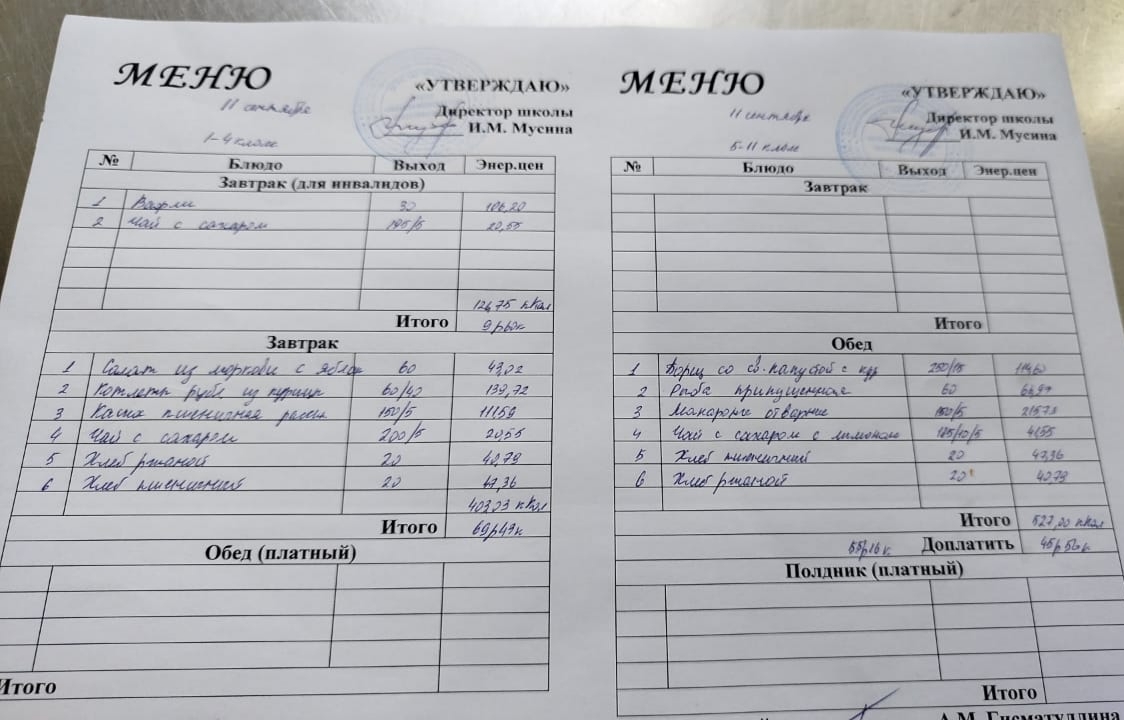 МЕНЮ
«УТВЕРЖДАЮ»
11 сентября
Директор школы
И.М. Мусина
1-4 класс
№ Блюдо Выход Энер.цен
Завтрак (для инвалидов)
1 Вафли 30 106,20
2 Чай с сахаром 195/5 20,55
126,75 кКал
Итого
Завтрак
1 Салат из моркови с яблок 60 43,02
2 Котлеты рубл из курицы 60/40 139,72
3 Каша пшеничная рассып 150/5 111,59
4 Чай с сахаром 200/5 20,55
5 Хлеб ржаной 20 40,79
6 Хлеб пшеничный 20 47,36
403,03 кКал
Итого 69р49к
Обед (платный)
Итого
МЕНЮ
«УТВЕРЖДАЮ»
11 сентября
Директор школы
И.М. Мусина
5-11 класс
№ Блюдо Выход Энер.цен
Завтрак
Итого
Обед
1 Борщ со св. капустой с кур 250/15 114,60
2 Рыба припущенная 60
3 Макароны отварные 150/5
4 Чай с сахаром с лимоном 195/10/5 41,55
5 Хлеб пшеничный 20 47,36
6 Хлеб ржаной 20 40,79
Итого 527,00 кКал
55р16к Доплатить 45р56к
Полдник (платный)
Итого
А.М. Гисматуллина